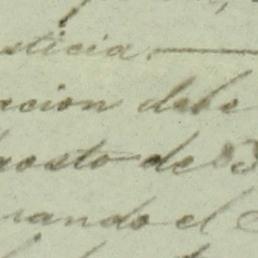 sticia.
acion debe
gosto de
rando el